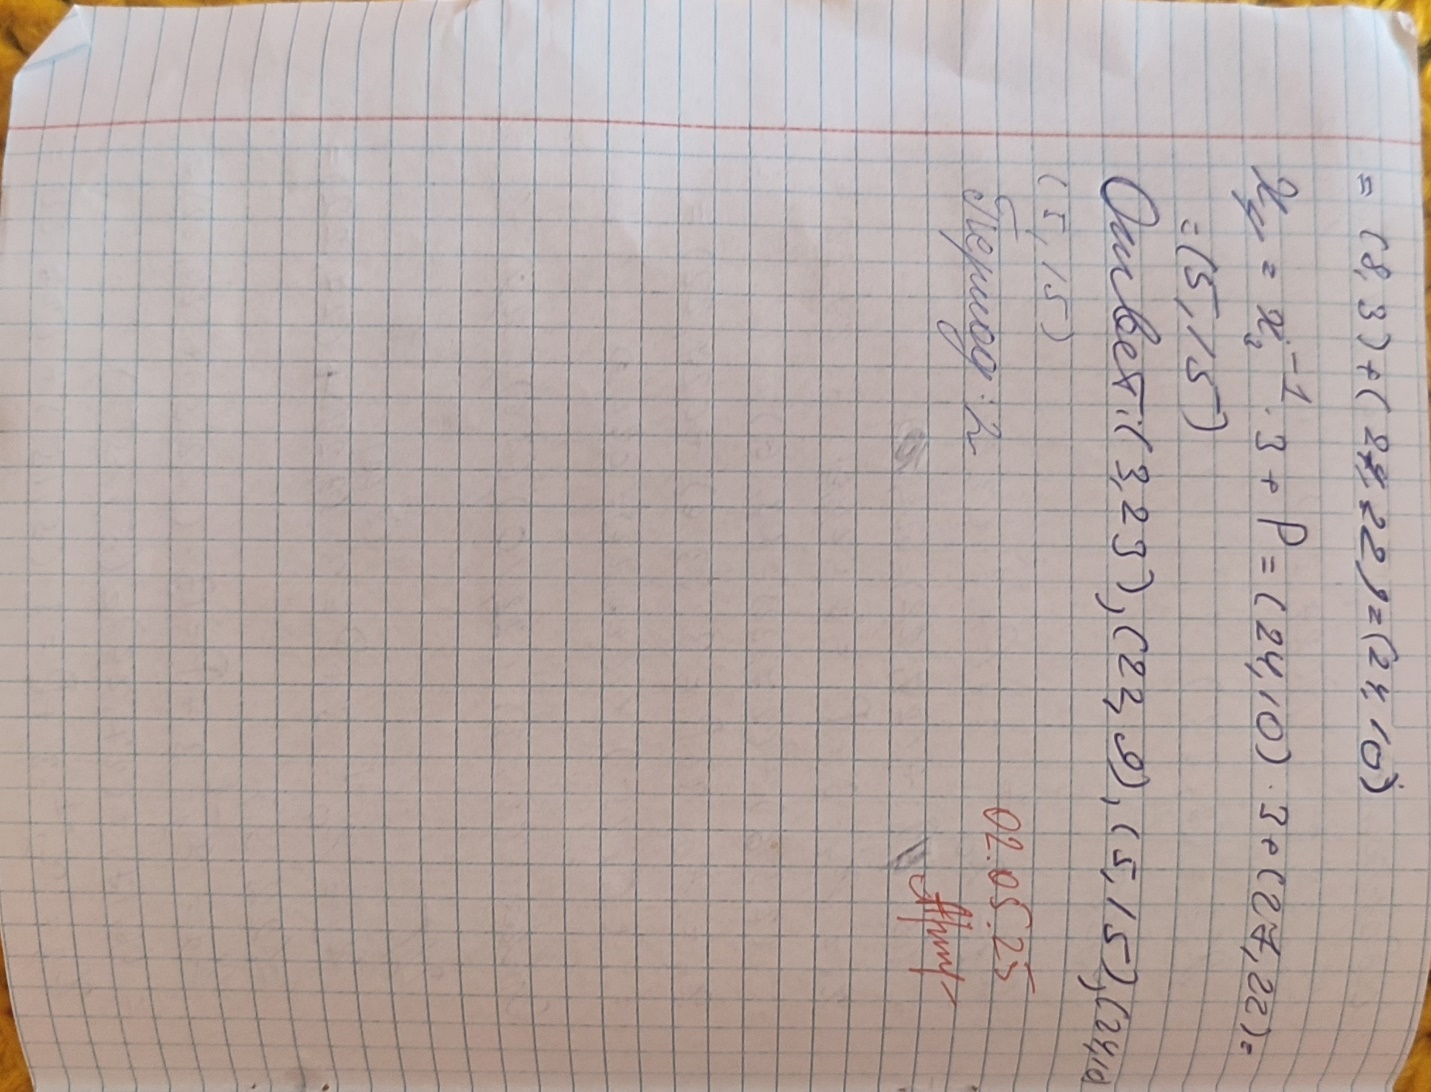 = (8,3)+(27,22)=(24,10)
x₄ = x₂⁻¹ · 3 + P = (24,10) · 3 + (27,22) =
= (5,15)
Ответ: (3,23), (22,9), (5,15), (24,10
(5,15)
Период: 2
02.05.25